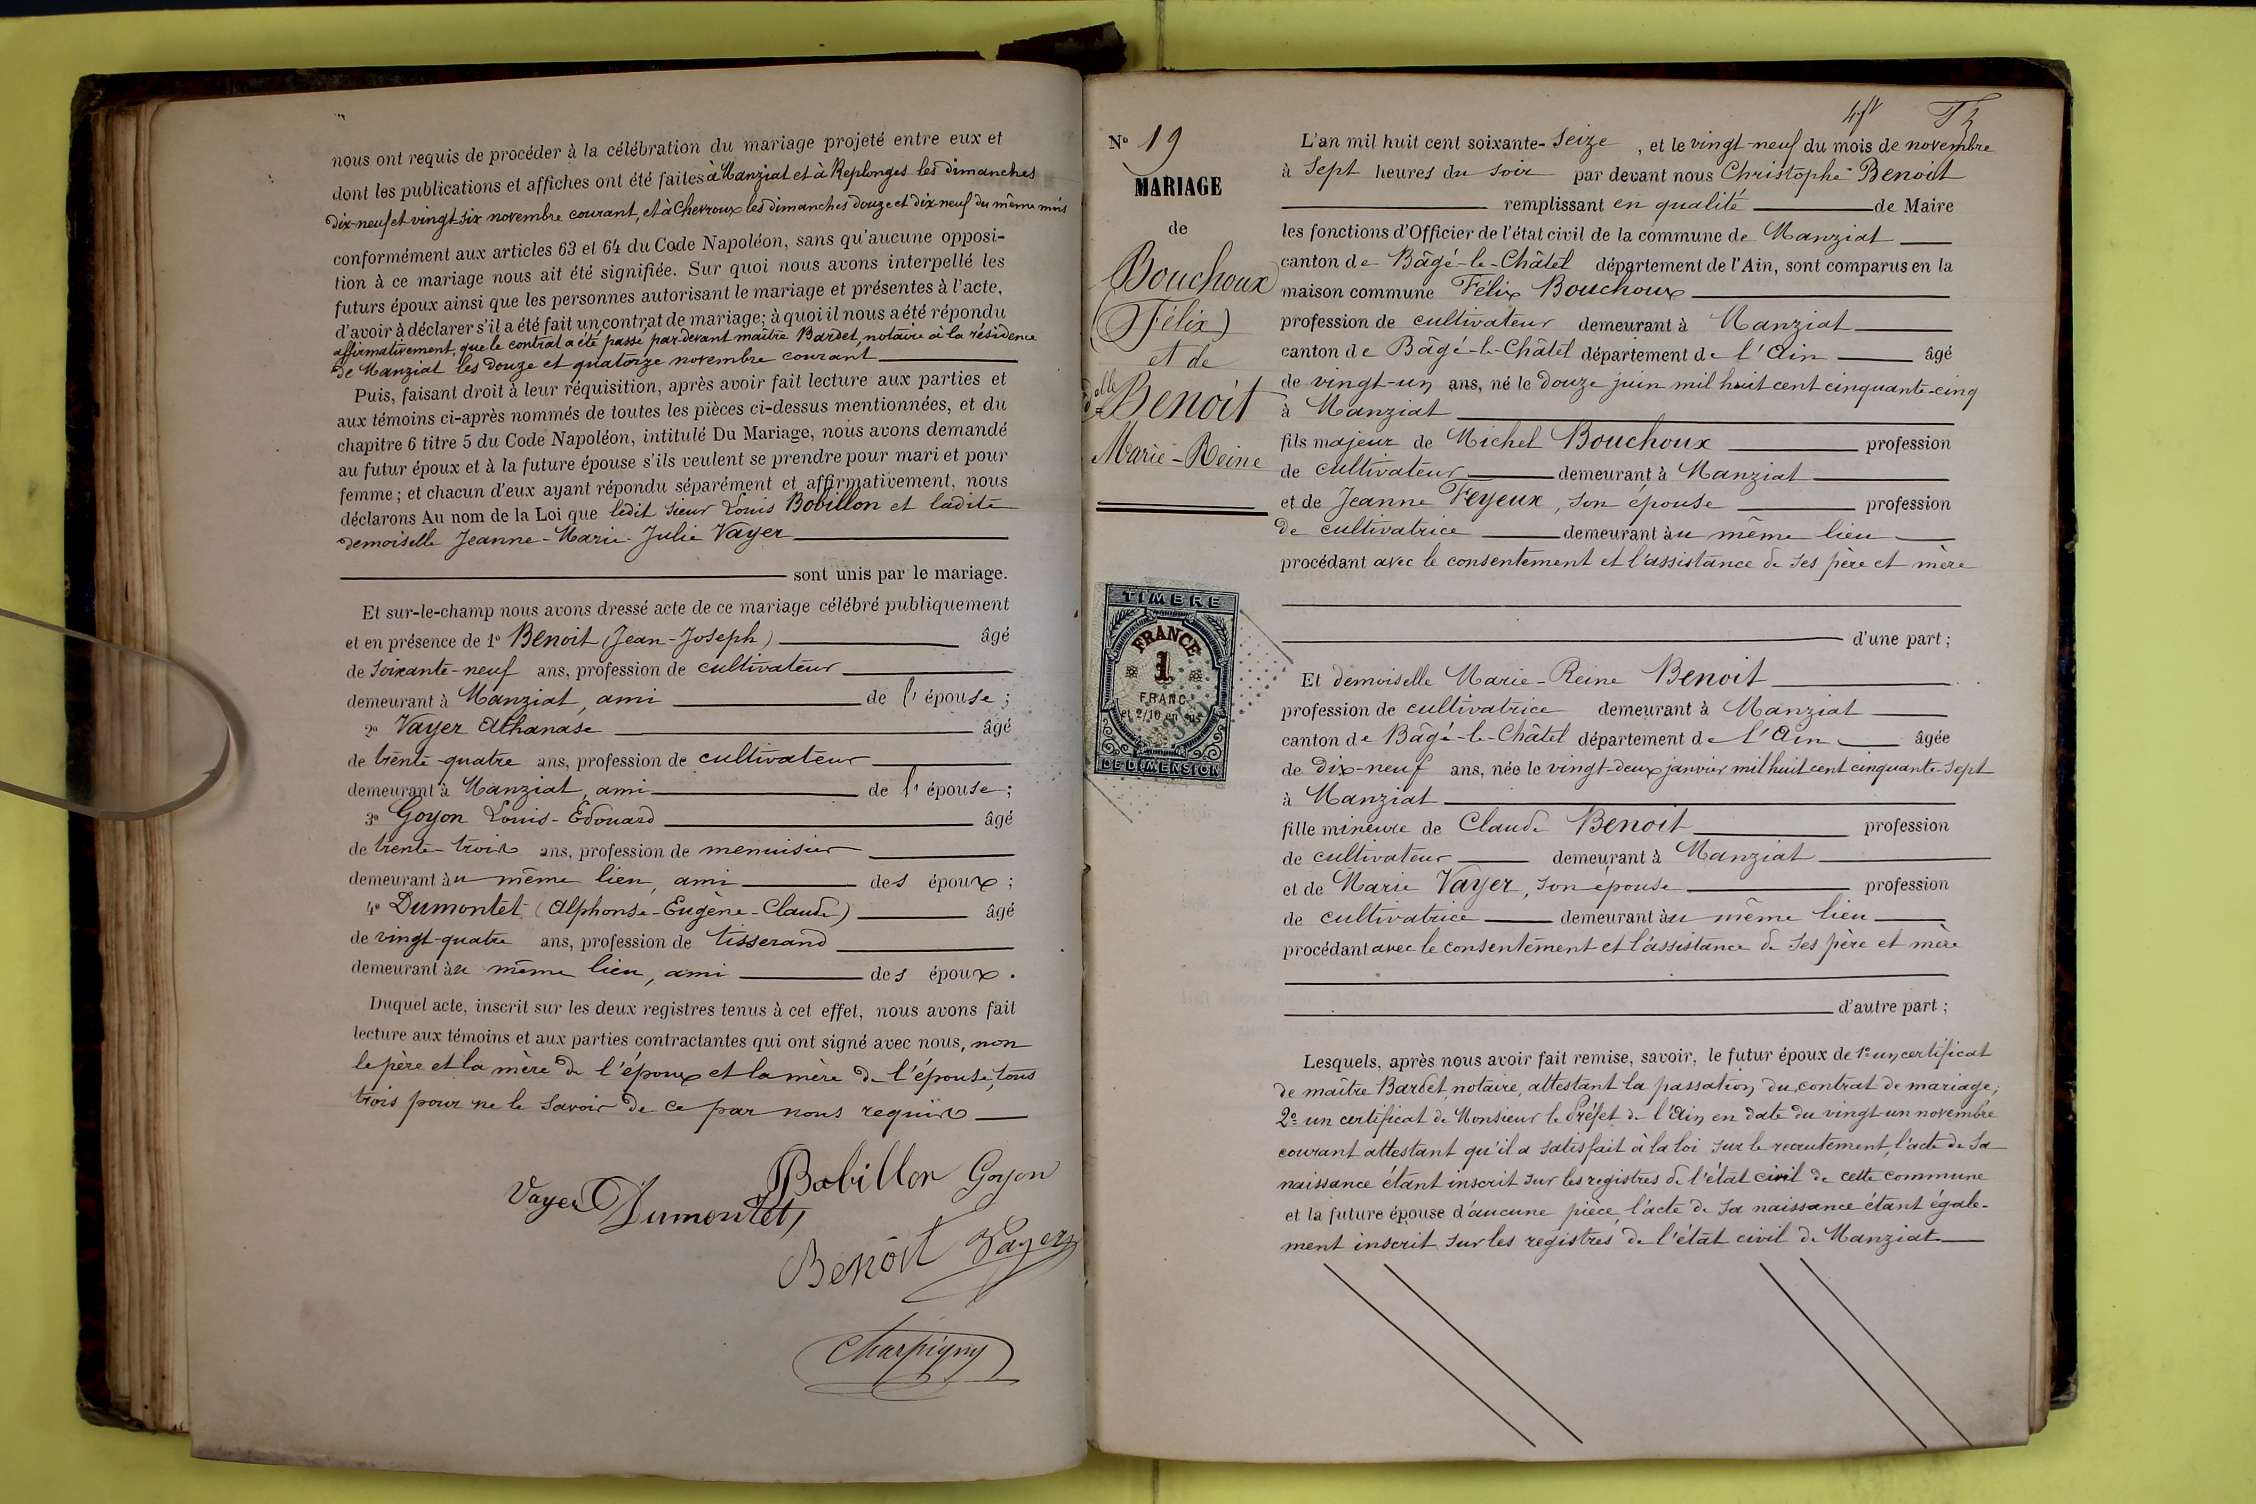 nous ont requis de procéder à la célébration du mariage projeté entre eux et
dont les publications et affiches ont été faites à Manziat et à Replonges les dimanches
dix-neuf et vingt-six novembre courant, et à Chevroux les dimanches douze et dix-neuf du même mois
conformément aux articles 63 et 64 du Code Napoléon, sans qu'aucune opposi-
tion à ce mariage nous ait été signifiée. Sur quoi nous avons interpellé les
futurs époux ainsi que les personnes autorisant le mariage et présentes à l'acte,
d'avoir à déclarer s'il a été fait un contrat de mariage; à quoi il nous a été répondu
affirmativement, que le contrat a été passé par-devant maître Bardet, notaire à la résidence
de Manziat les douze et quatorze novembre courant
Puis, faisant droit à leur réquisition, après avoir fait lecture aux parties et
aux témoins ci-après nommés de toutes les pièces ci-dessus mentionnées, et du
chapitre 6 titre 5 du Code Napoléon, intitulé Du Mariage, nous avons demandé
au futur époux et à la future épouse s'ils veulent se prendre pour mari et pour
femme; et chacun d'eux ayant répondu séparément et affirmativement, nous
déclarons Au nom de la Loi que ledit sieur Louis Bobillon et ladite
demoiselle Jeanne-Marie-Julie Vayer
sont unis par le mariage.
Et sur-le-champ nous avons dressé acte de ce mariage célébré publiquement
et en présence de 1º Benoit (Jean-Joseph) âgé
de soixante-neuf ans, profession de cultivateur
demeurant à Manziat, ami de l'épouse;
2º Vayer Athanase âgé
de trente-quatre ans, profession de cultivateur
demeurant à Manziat, ami de l'épouse;
3º Goyon Louis-Edouard âgé
de trente-trois ans, profession de menuisier
demeurant au même lieu, ami des époux;
4º Dumontet (Alphonse-Eugène-Claude) âgé
de vingt-quatre ans, profession de tisserand
demeurant au même lieu, ami des époux.
Duquel acte, inscrit sur les deux registres tenus à cet effet, nous avons fait
lecture aux témoins et aux parties contractantes qui ont signé avec nous, non
le père et la mère de l'époux et la mère de l'épouse, tous
trois pour ne le savoir de ce par nous requis
Bobillon Goyon
Vayer Dumontet
Benoit Vayer
Charpigny
Nº 19
MARIAGE
de
Bouchoux
(Félix)
et de
delle Benoit
Marie-Reine
TIMBRE
FRANCE
1
FRANC
et 2/10 en sus
DE DIMENSION
L'an mil huit cent soixante-seize, et le vingt-neuf du mois de novembre
à sept heures du soir par devant nous Christophe Benoit
remplissant en qualité de Maire
les fonctions d'Officier de l'état civil de la commune de Manziat
canton de Bâgé-le-Châtel département de l'Ain, sont comparus en la
maison commune Félix Bouchoux
profession de cultivateur demeurant à Manziat
canton de Bâgé-le-Châtel département de l'Ain âgé
de vingt-un ans, né le douze juin mil huit cent cinquante-cinq
à Manziat
fils majeur de Michel Bouchoux profession
de cultivateur demeurant à Manziat
et de Jeanne Feyeux, son épouse profession
de cultivatrice demeurant au même lieu
procédant avec le consentement et l'assistance de ses père et mère
d'une part;
Et demoiselle Marie-Reine Benoit
profession de cultivatrice demeurant à Manziat
canton de Bâgé-le-Châtel département de l'Ain âgée
de dix-neuf ans, née le vingt-deux janvier mil huit cent cinquante-sept
à Manziat
fille mineure de Claude Benoit profession
de cultivateur demeurant à Manziat
et de Marie Vayer, son épouse profession
de cultivatrice demeurant au même lieu
procédant avec le consentement et l'assistance de ses père et mère
d'autre part;
Lesquels, après nous avoir fait remise, savoir, le futur époux de 1º un certificat
de maître Bardet, notaire, attestant la passation du contrat de mariage;
2º un certificat de Monsieur le Préfet de l'Ain en date du vingt-un novembre
courant attestant qu'il a satisfait à la loi sur le recrutement, l'acte de sa
naissance étant inscrit sur les registres de l'état civil de cette commune
et la future épouse d'aucune pièce, l'acte de sa naissance étant égale-
ment inscrit sur les registres de l'état civil de Manziat